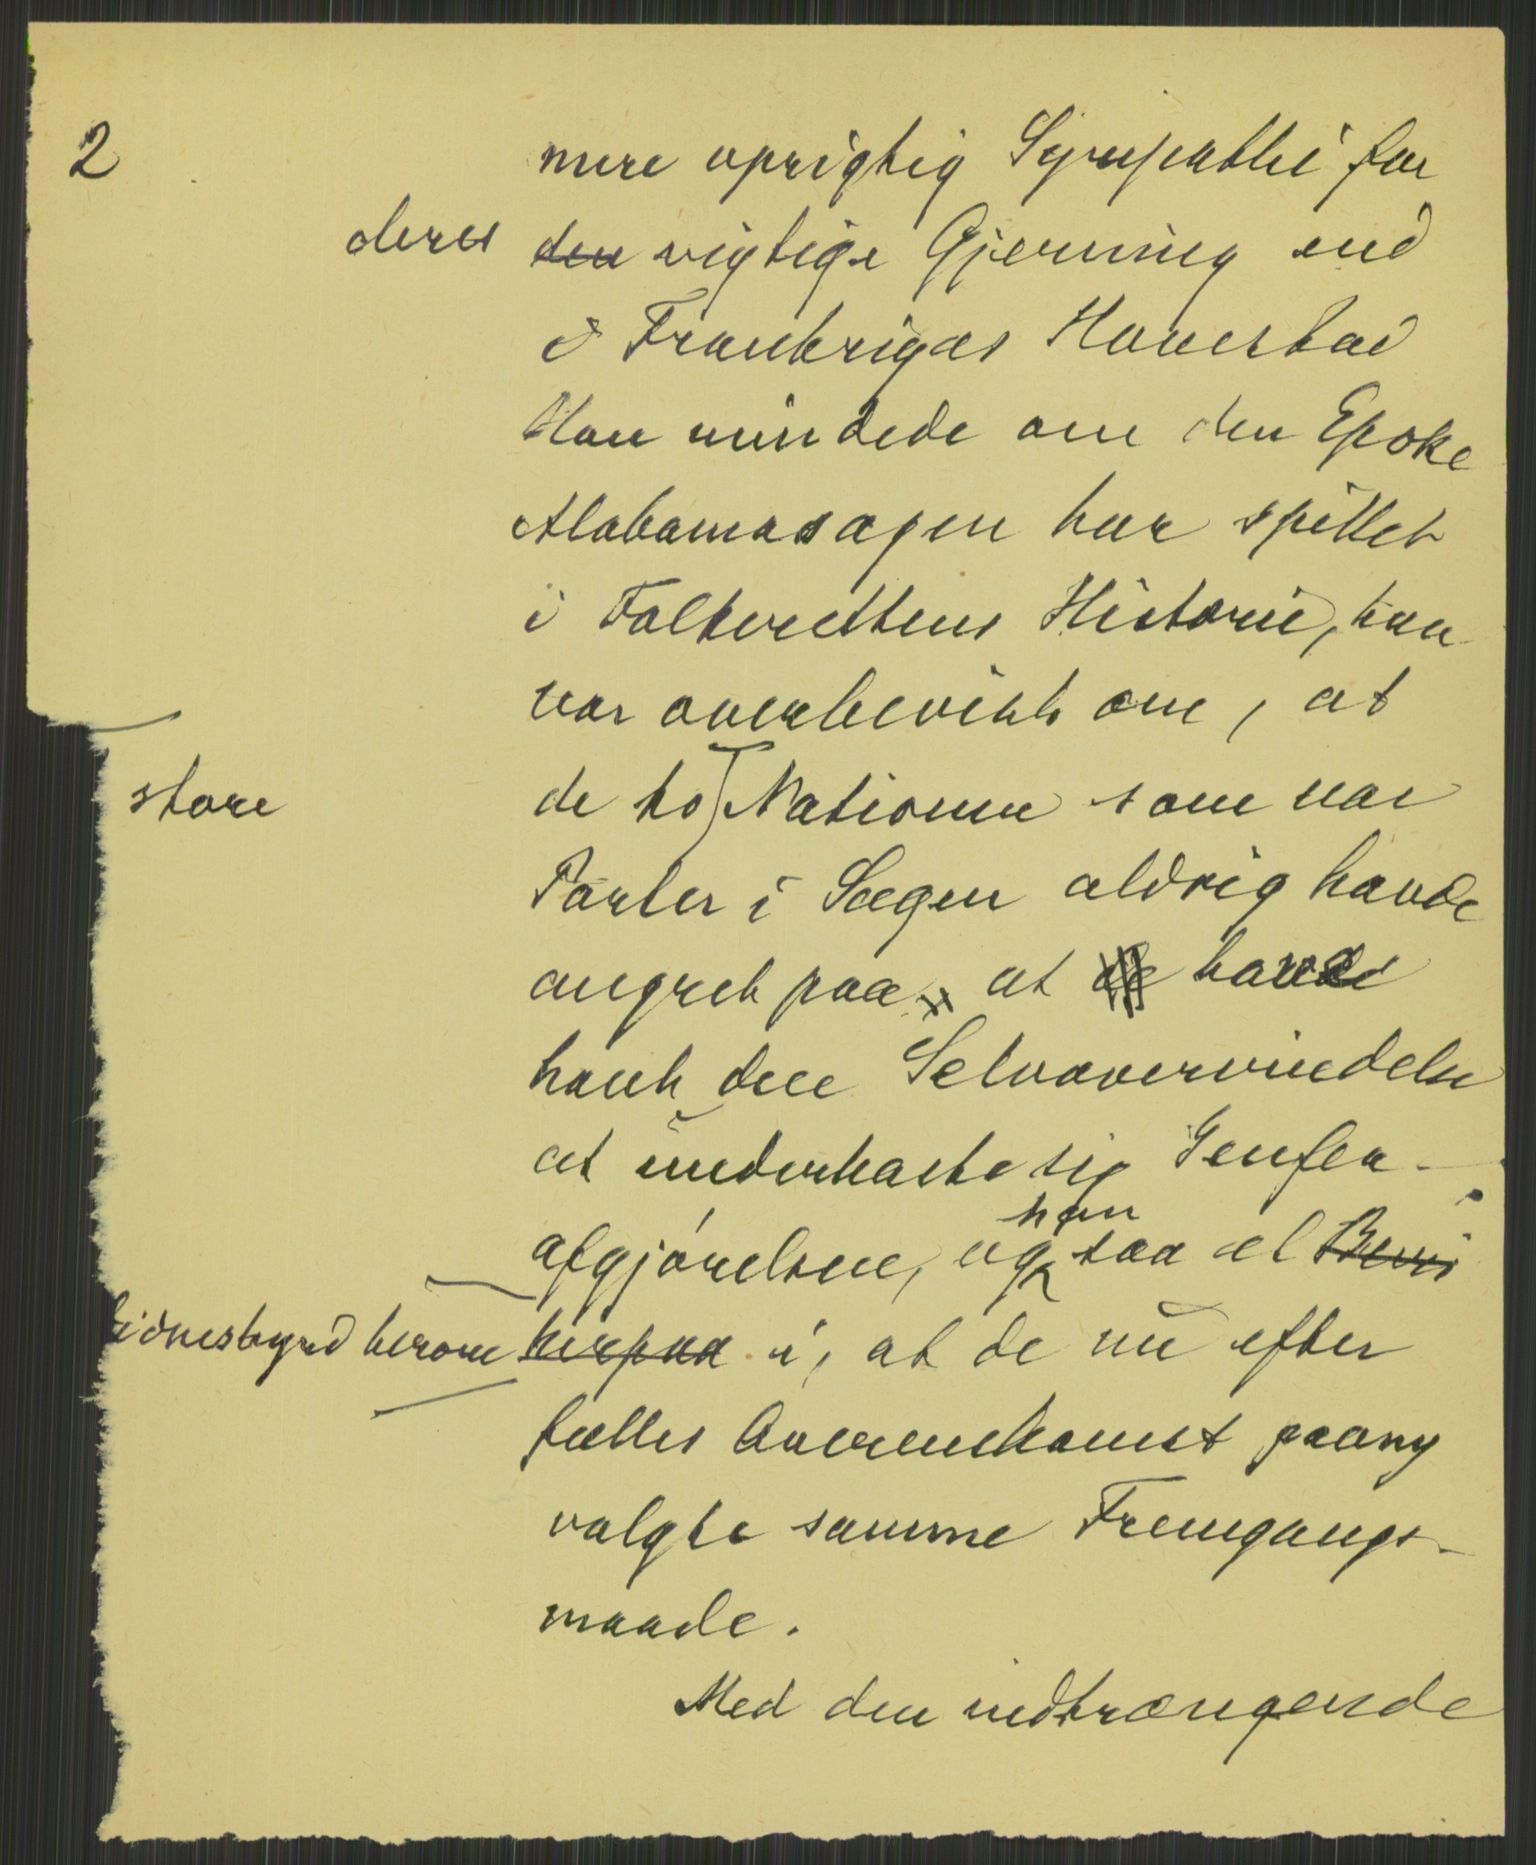 2
mere oprigtig Sympathi for
deres den vigtige Gjerning end
i Frankriges Hovestad
Han mindede om den Epoke
Alabamasagen har spillet
i Folkerettens Historie, han
var overbevist om, at
store de to Nationer som var
Parter i Sagen aldrig havde
angret paa at de havde
havt den Selvovervindelse
at underkaste sig Genfer-
afgjørelsen, og han saa et Bevis
Vidnesbyrd herom herpaa i, at de nu efter
fælles Overenskomst paany
valgte samme Fremgangs-
maade.
Med den indtrængende